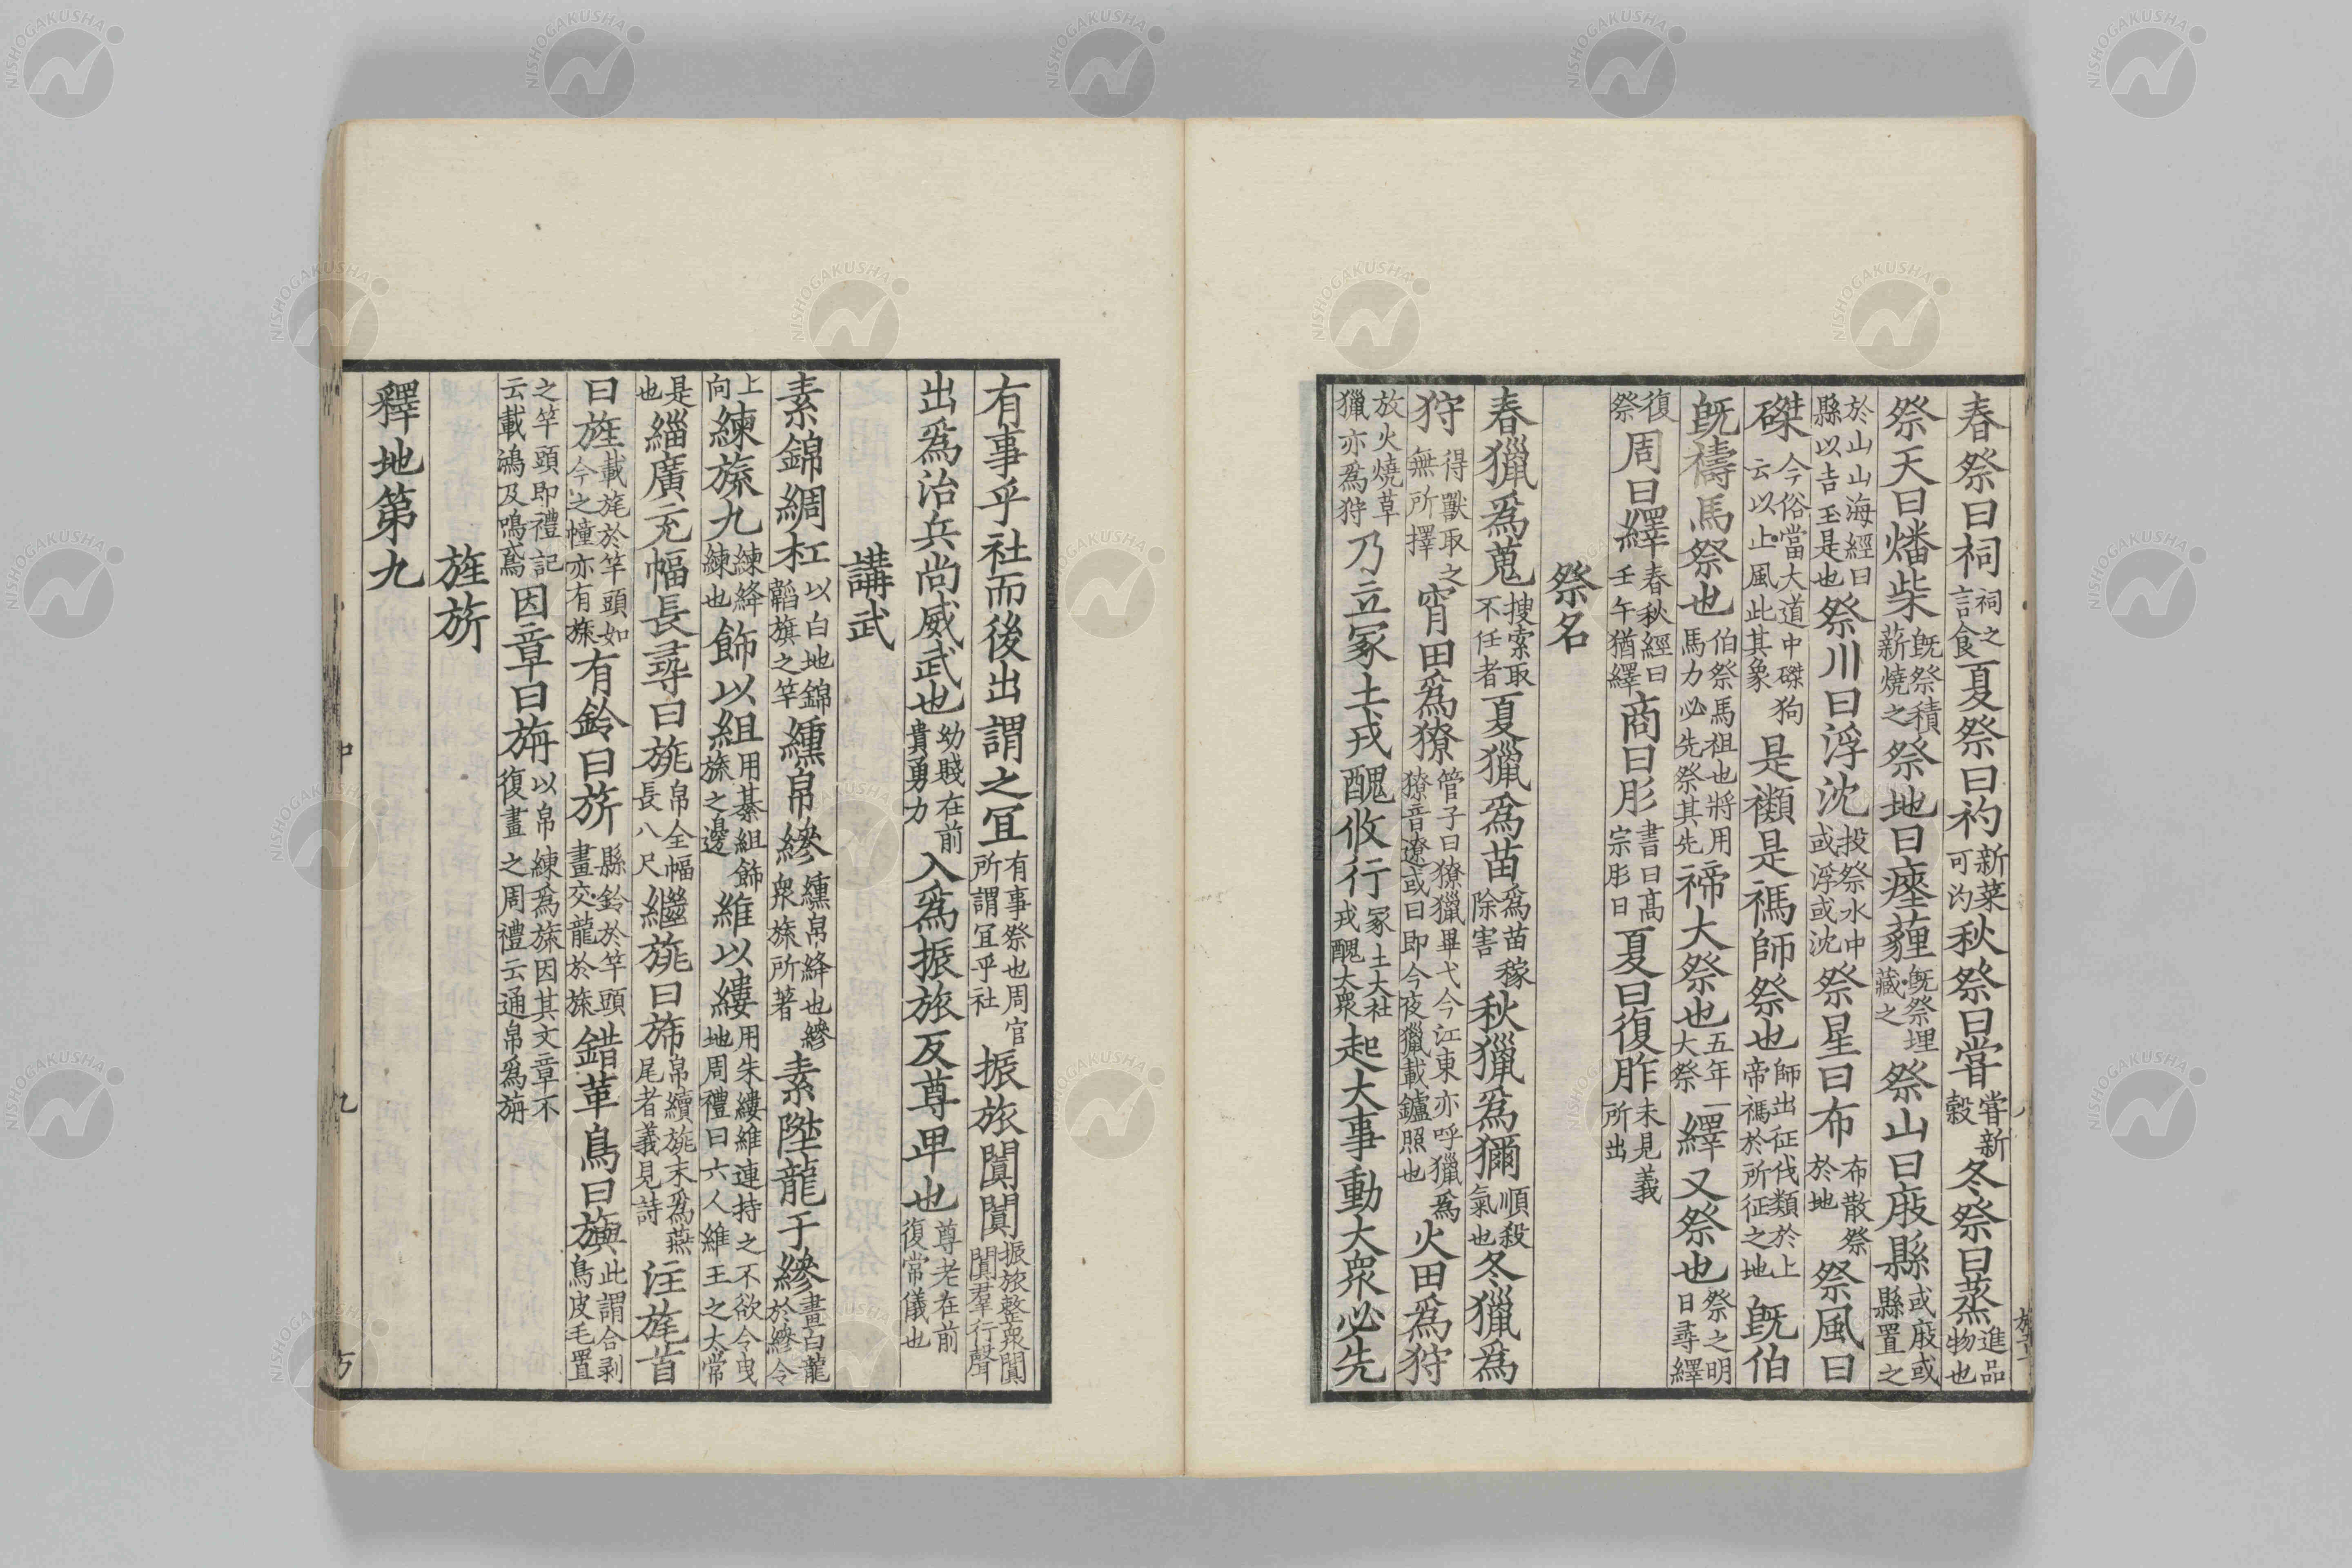 春祭曰祠祠之言食夏祭曰礿新菜可汋秋祭曰甞甞新穀冬祭曰蒸進品物也
祭天曰燔柴既祭積薪燒之祭地曰瘞薶既祭埋藏之祭山曰庪縣或庪或縣置之
於山山海經曰縣以吉玉是也祭川曰浮沈投祭水中或浮或沈祭星曰布布散祭於地祭風曰
磔今俗當大道中磔狗云以止風此其象是禷是禡師祭也師出征伐類於上帝禡於所征之地既伯
既禱馬祭也伯祭馬祖也將用馬力必先祭其先禘大祭也五年一大祭繹又祭也祭之明日尋繹
復祭周曰繹春秋經曰壬午猶繹商曰肜書曰高宗肜日夏曰復胙未見義所出
祭名
春獵爲蒐搜索取不任者夏獵爲苗爲苗稼除害秋獵爲獮順殺氣也冬獵爲
狩得獸取之無所擇宵田爲獠管子曰獠獵畢弋今江東亦呼獵爲獠音遼或曰即今夜獵載鑪照也火田爲狩
放火燒草獵亦爲狩乃立冢土戎醜攸行冢土大社戎醜大衆起大事動大衆必先
有事乎社而後出謂之宜有事祭也周官所謂宜乎社振旅闐闐振旅整衆闐闐羣行聲
出爲治兵尚威武也幼賤在前貴勇力入爲振旅反尊卑也尊老在前復常儀也
講武
素錦綢杠以白地錦韜旗之竿纁帛縿纁帛絳也縿衆旒所著素陞龍于縿畫白龍於縿令
上向練旒九練絳練也飾以組用綦組飾旒之邊維以縷用朱縷維連持之不欲令曳地周禮曰六人維王之太常
是也緇廣充幅長尋曰旐帛全幅長八尺繼旐曰旆帛續旐末爲燕尾者義見詩注旄首
曰旌載旄於竿頭如今之幢亦有旒有鈴曰旂縣鈴於竿頭畫交龍於旒錯革鳥曰旟此謂合剥鳥皮毛置
之竿頭即禮記云載鴻及鳴鳶因章曰旃以帛練爲旒因其文章不復畫之周禮云通帛爲旃
旌旂
釋地第九
NISHOGAKUSHA